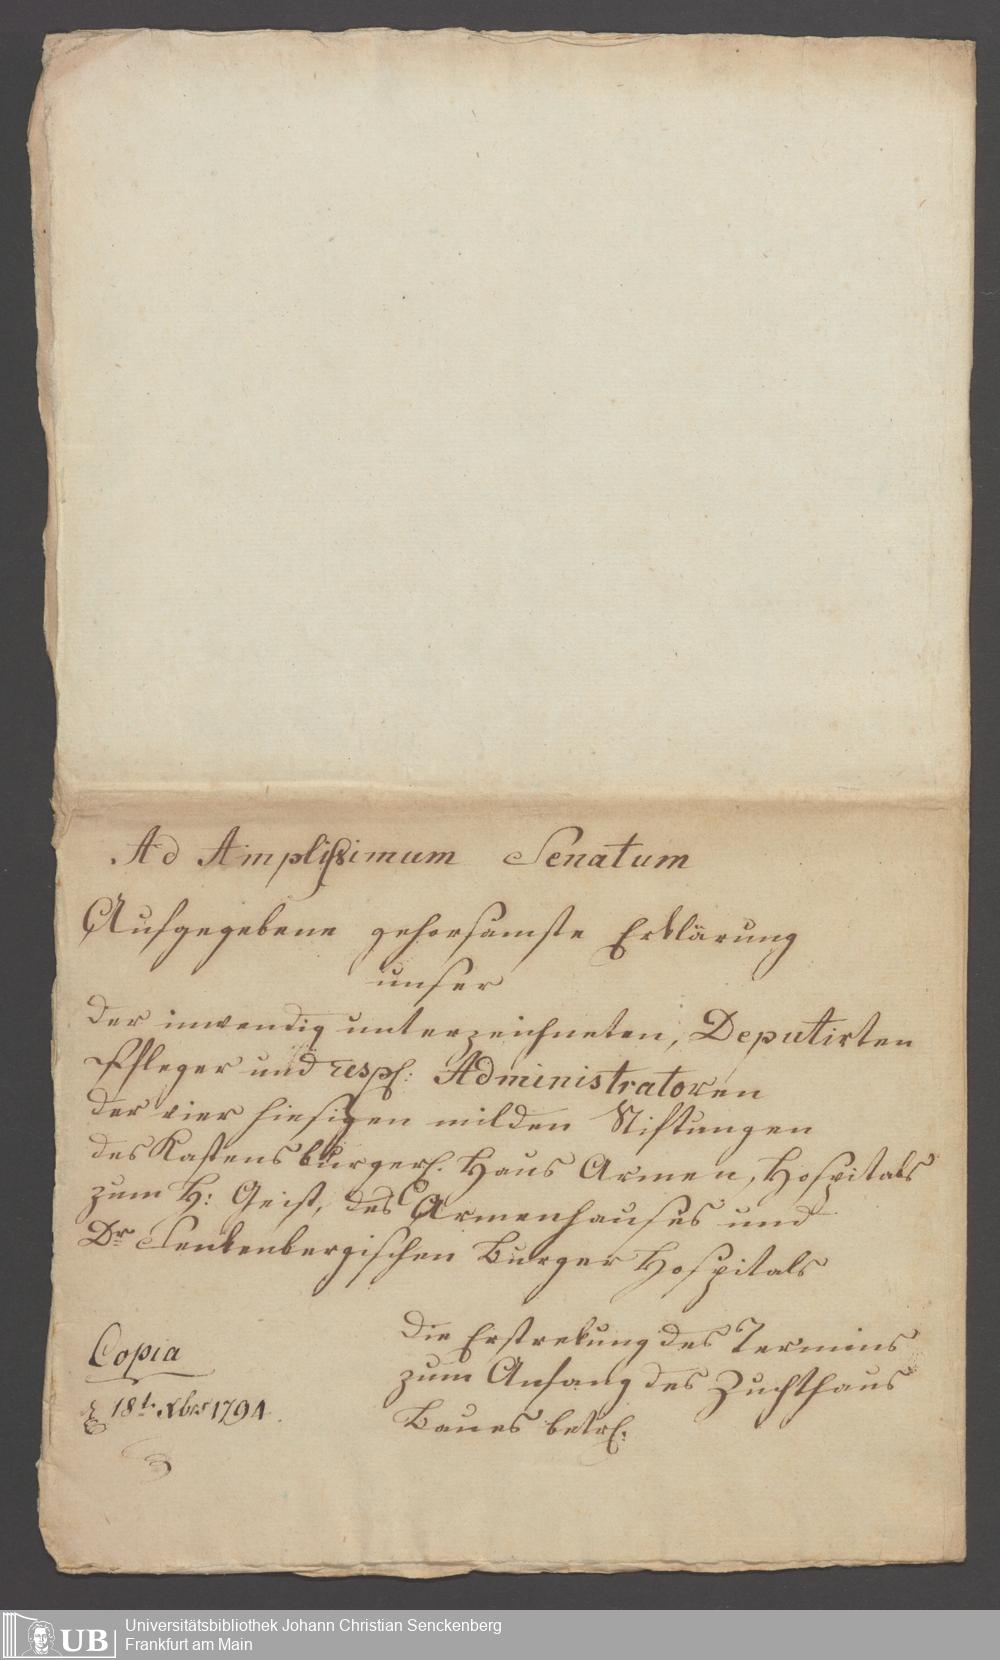 Ad Amplissimum Senatum
Aufgegebene gehorsamste Erklärung
unser
der inwendig unterzeichneten, Deputirten
Pfleger und resp: Administratoren
der vier hiesigen milden Stiftungen
des Kastens burgerl. Haus Armen, Hospitals
zum H: Geist, des Armenhauses und
Dr. Senkenbergischen Burger Hospitals
Die Erstrekung des Termins
zum Anfang des Zuchthaus
Baues betrf:
Copia
18t. Xbr 1794.
UB
Universitätsbibliothek Johann Christian Senckenberg
Frankfurt am Main